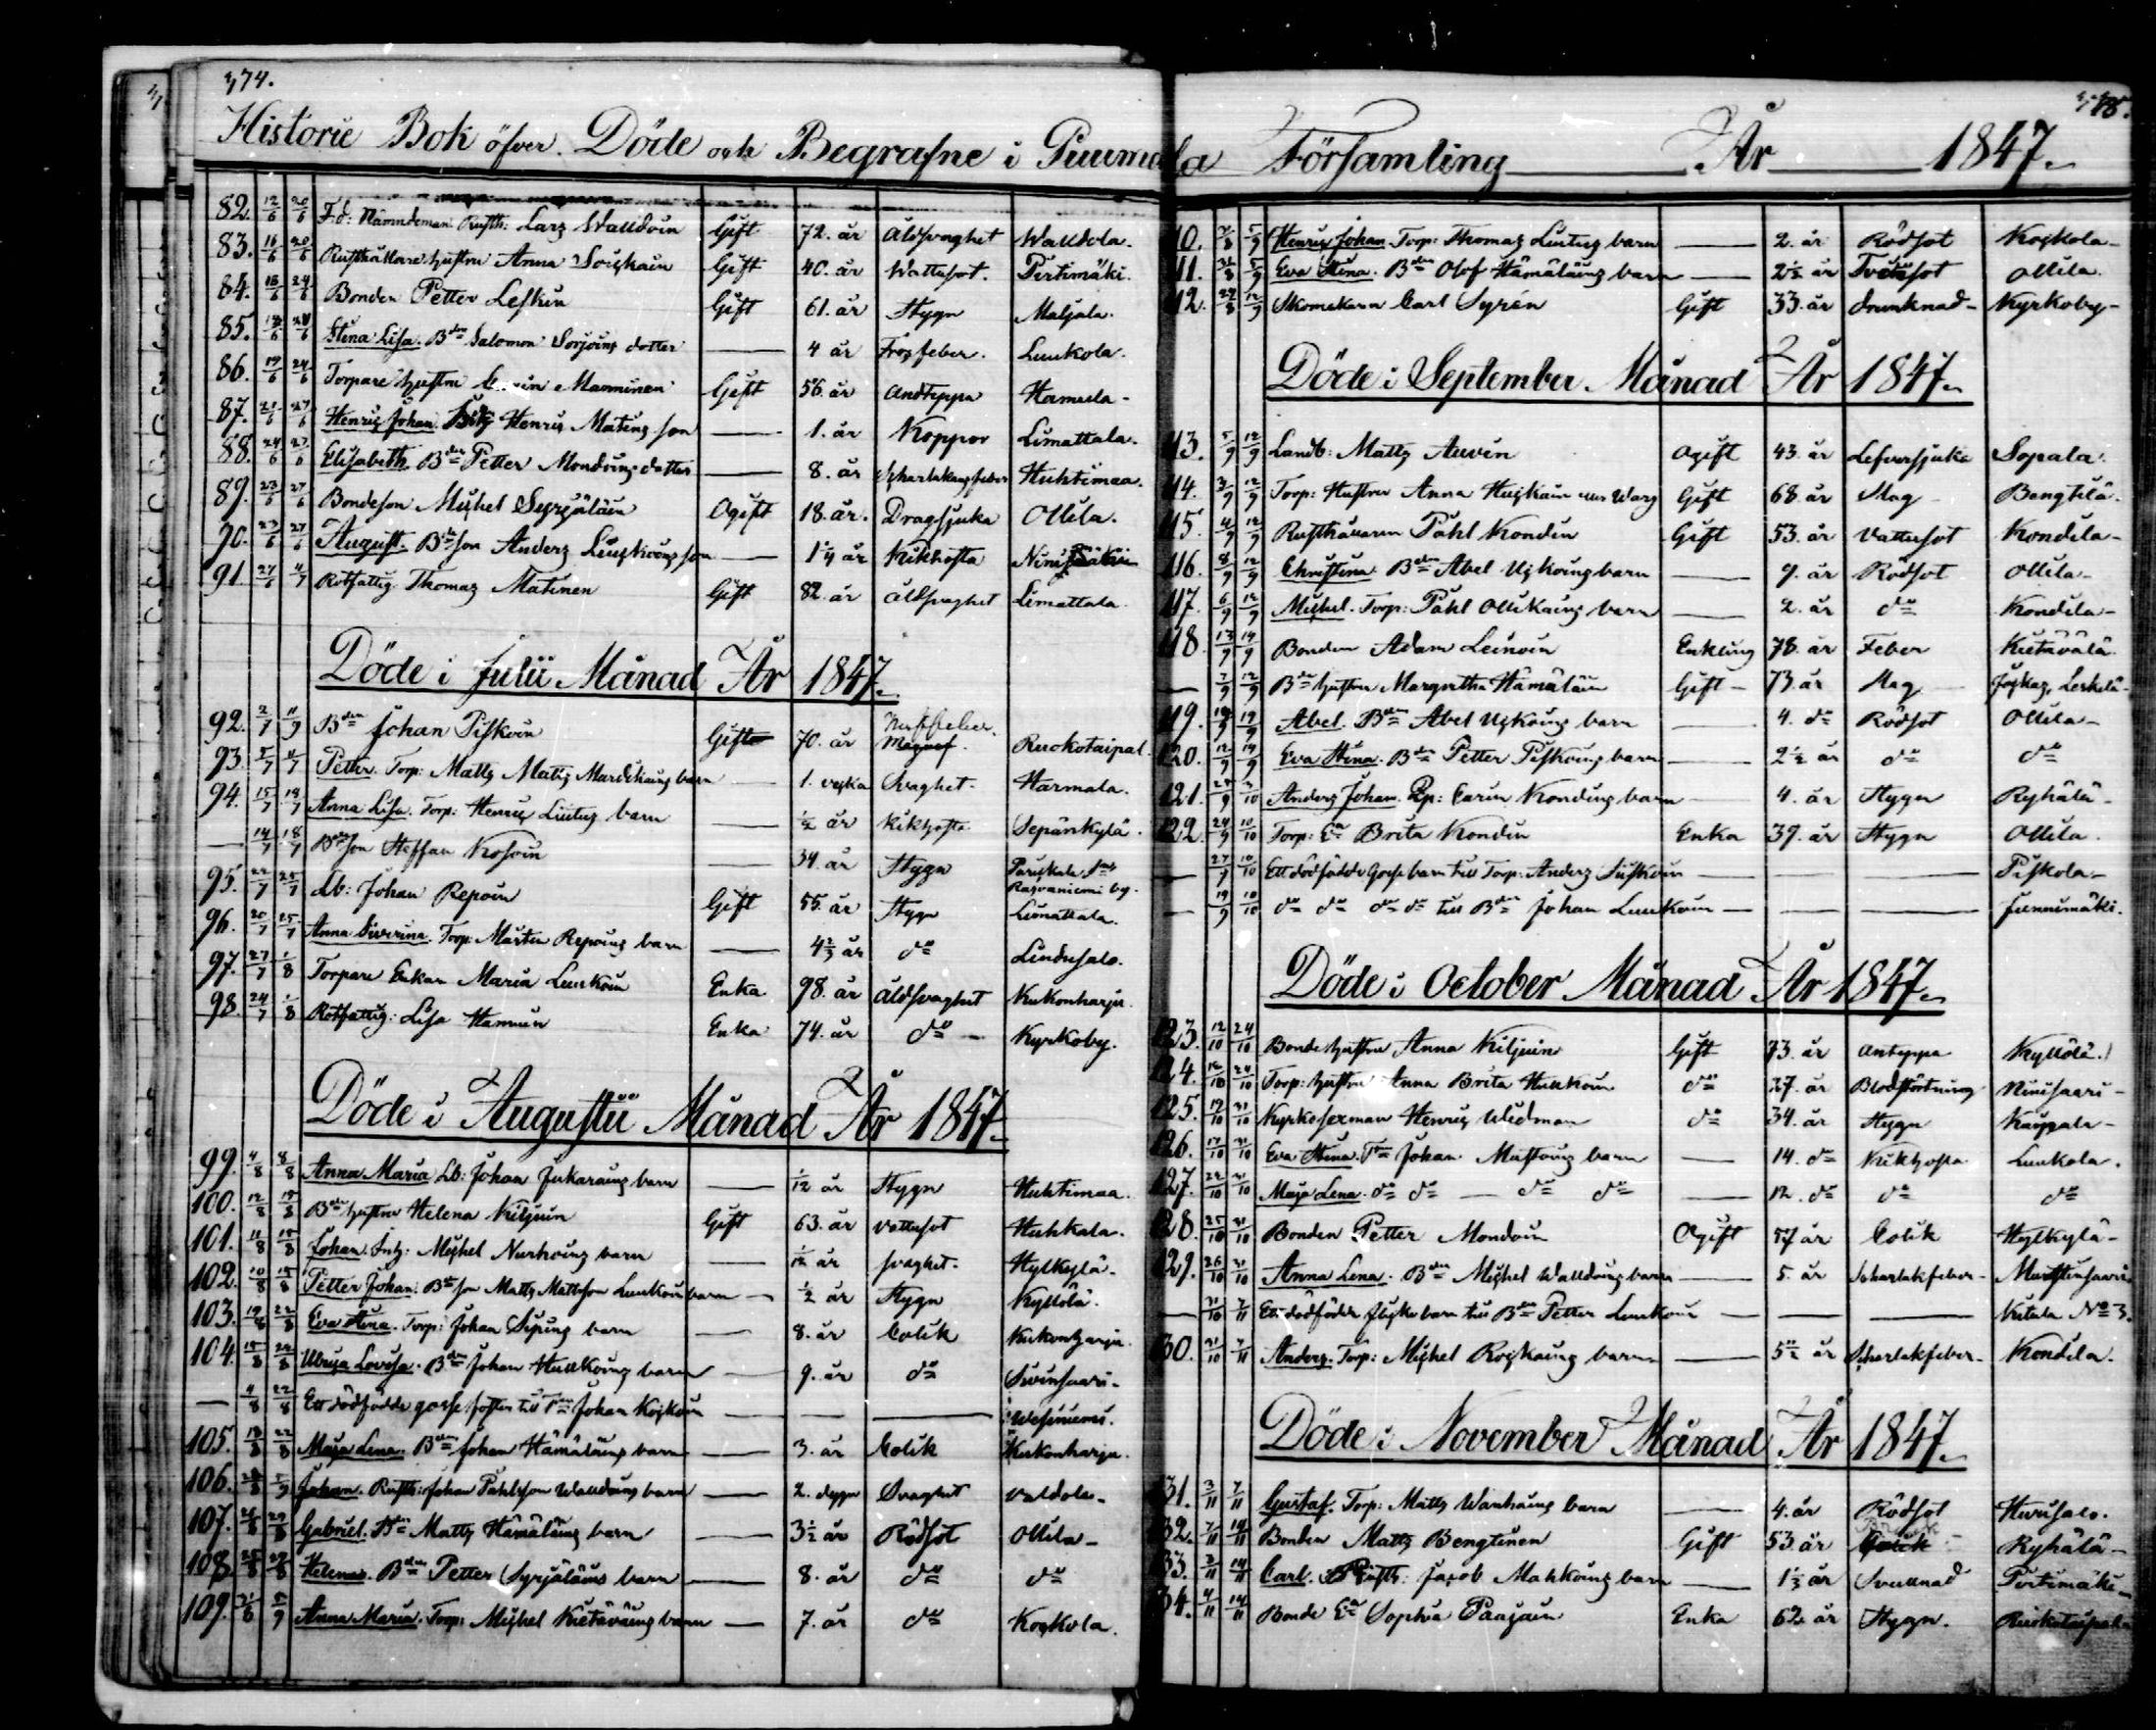 374.
Historie Bok öfver Döde och Begrafne i Puumala Församling År 1847.
82. 12/6 20/6 F.d: Nämndeman Rusth: Lars Walldoin Gift 72. år Åldsvaghet Walldola.
83. 16/6 20/6 Rusthållare hustru Anna Gift 40. år Wattusot. Pirtimäki.
84. 18/6 24/6 Bonden Petter Leskin Gift 61. år Stygn Maljala.
85. Stina Lisa. Bdn Salomon Sorjoins dotter 4 år feber. Luukola.
86. 19/6 24/6 Torpare hustru Manninen Gift 56. år Andteppa Hamula.
87. 21/6 27/6 Henric Johan Henric Matins son 1. år Koppor Limattala.
88. 24/6 27/6 Elisabeth Bdn Petter Mondoins dotter 8. år Scharlakansfeber Huhtimaa.
89. 23/6 27/6 Bondeson Michel Syrjäläin Ogift 18. år. Dragsjuka Ollila.
90. 23/6 27/6 August. Bdeson Anders son 1 1/4 år Kikhosta
91. 27/6 4/7 Rotfattig Thomas Matinen Gift 82. år Åldsvaghet Limattala.
Döde i Julii Månad År 1847.
92. 2/7 11/9 Bdn Johan Piskoin Gift 70. år Nerffeber. Ruokotaipal.
93. 5/7 11/7 Petter. Torp: Matts Matts Mardikains barn 1. vecka Svaghet. Harmala.
94. 15/7 18/7 Anna Lisa. Torp: Henric Liutus barn 1/2 år Kikhosta Sepänkylä.
— 14/7 18/7 Bdeson Staffan Kosoin 34. år Stygn Parikala Snt Rasvaniemi by.
95. 22/7 25/7 Lb: Johan Repoin Gift 55. år Stygn Limattala.
96. 20/7 25/7 Anna Severina. Torp: Mårten Repoins barn 4 2/3 år do Lindusalo.
97. 27/7 1/8 Torpare Enkan Maria Luukoin Enka 98. år Åldsvaghet Kukonharju.
98. 24/7 1/8 Rotfattig: Lisa Hannuin Enka 74. år do Kyrkoby.
Döde i Augustii Månad År 1847.
99. 4/8 8/8 Anna Maria Lb: Johan Jukarains barn 1/12 år Stygn Huhtimaa.
100. 12/8 15/8 Bde hustru Helena Kiljuin Gift 63. år Vattusot Huhkala.
101. 11/8 15/8 Johan. Inh: Michel Nurhoins barn 1/12 år svaghet. Hylkylä.
102. 10/8 15/8 Petter Johan. Bdeson Matts Mattsson Luukoin barn 1/2 år Stygn Kyllölä.
103. 19/8 22/8 Eva Stina. Torp: Johan barn 8. år Colik Kukonharju.
104. 18/8 22/8 Ulrica Lovisa. Bdn Johan Hulkoins barn 9. år do
— 4/8 22/8 Ett dödfödde gosse foster till Trp Johan Koskoin
105. 18/8 22/8 Maja Lena. Bdn Johan Hämäläins barn 3. år Colik Kukonharju.
106. Johan. Rusth: Johan Påhlsson Walldoins barn 2. dygn Svaghet Valdola.
107. 26/8 29/8 Gabriel. Bdn Matts Hämäläins barn 3 1/2 år Rödsot Ollila.
108. 25/8 29/8 Helena. Bdn Petter Syrjäläins barn 8. år do do
109. 31/8 5/9 Anna Maria. Torp: Michel Kietäväins barn 7. år do Koskola.
110. Henric Johan Torp: Thomas Liutus barn 2. år Rödsot Koskola.
111. 31/8 5/9 Eva Stina. Bdn Olof Hämäläins barn 2 1/2 år Ollila.
112. 29/8 12/9 Skomakarn Carl Syrén Gift 33. år drunknad Kyrkoby
Döde i September Månad År 1847.
113. 5/9 12/9 Landb: Matts Auvin Ogift 43. år Lefversjuka Sopala.
114. 3/9 12/9 Torp: Hustru Anna Gift 68. år Slag Bengtilä.
115. 4/9 12/9 Rusthållaren Påhl Kondin Gift 53. år Vattusot Kondila
116. 8/9 12/9 Christina Bdn Abel Uskoins barn 9. år Rödsot Ollila
117. 6/9 12/9 Michel. Torp: Påhl Ollikains barn 2. år do Kondila
118. 13/9 19/9 Bonden Adam Leinoin Enkling 78. år Feber Kietävälä
— 7/9 12/9 Bde hustru Margretha Hämäläin Gift 73. år Slag Leskelä
119. 19/9 Abel. Bdn Abel Uskoins barn 4. do Rödsot Ollila
120. 12/9 19/9 Eva Stina. Bdn Petter Piskoins barn 2 1/2 år do do
121. Anders Johan. Pp: Carin Kondins barn 4. år Stygn Ryhälä
122. 24/9 10/10 Torp: Ea Brita Kondin Enka 39. år Stygn Ollila.
— 27/9 10/10 Ett dödfödde Gosse barn till Torp: Anders Piskola
— 19/9 10/10 do do do do till Bdn Johan Luukoin Junnimäki.
Döde i October Månad År 1847.
123. 12/10 24/10 Bonde hustru Anna Kiljuin Gift 73. år Anteppa Kyllölä.
124. 16/10 24/10 Torp: hustru Anna Brita Hulkoin do 27. år Blodstörtning Niinisaari
125. 19/10 31/10 Kyrkosexman Henric Widman do 34. år Stygn
126. 17/10 31/10 Eva Stina. Johan Mustoins barn 14. do Kikhosta Luukola.
127. 22/10 31/10 Maja Lena. do do — do do 12. do do do
128. 25/10 31/10 Bonden Petter Mondoin Ogift 57 år Colik Hylkylä
129. 26/10 31/10 Anna Lena. Bdn Michel Walldoins barn 5. år Scharlakfeber
— 31/10 7/11 Ett dödfödde flicke barn till Bdn Petter Luukoin Kitula No 3.
130. 31/10 7/11 Anders. Torp: Michel Roskains barn år Scharlakfeber. Kondila.
Döde i November Månad År 1847.
131. 3/11 7/11 Gustaf. Torp: Matts Wanhains barn 4. år Rödsot Hurisalo.
132. 7/11 14/11 Bonden Matts Bengtinen Gift 53. år Ryhälä
133. 3/11 14/11 Carl. Rusth: Jacob Mahkoins barn 1 1/3 år Svullnad Pirtimäki
134. 4/11 14/11 Bonde Ea Sophia Paajain Enka 62. år Stygn. Ruokotaipale